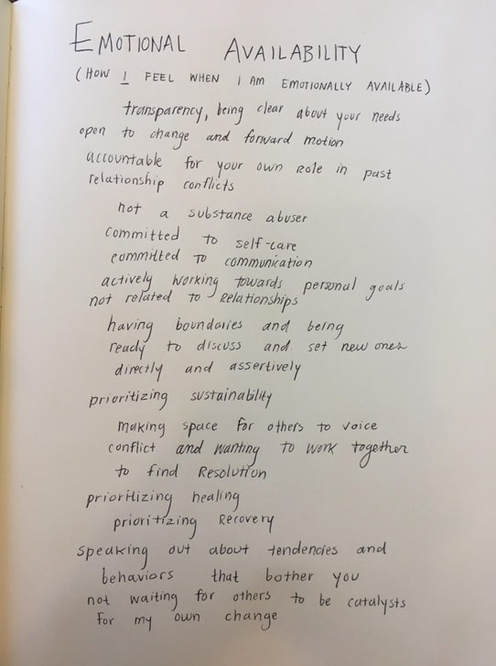 EMOTIONAL AVAILABILITY
(HOW I FEEL WHEN I AM EMOTIONALLY AVAILABLE)
transparency, being clear about your needs
open to change and forward motion
accountable for your own role in past
relationship conflicts
not a substance abuser
committed to self-care
committed to communication
actively working towards personal goals
not related to relationships
having boundaries and being
ready to discuss and set new ones
directly and assertively
prioritizing sustainability
making space for others to voice
conflict and wanting to work together
to find Resolution
prioritizing healing
prioritizing Recovery
speaking out about tendencies and
behaviors that bother you
not waiting for others to be catalysts
for my own change